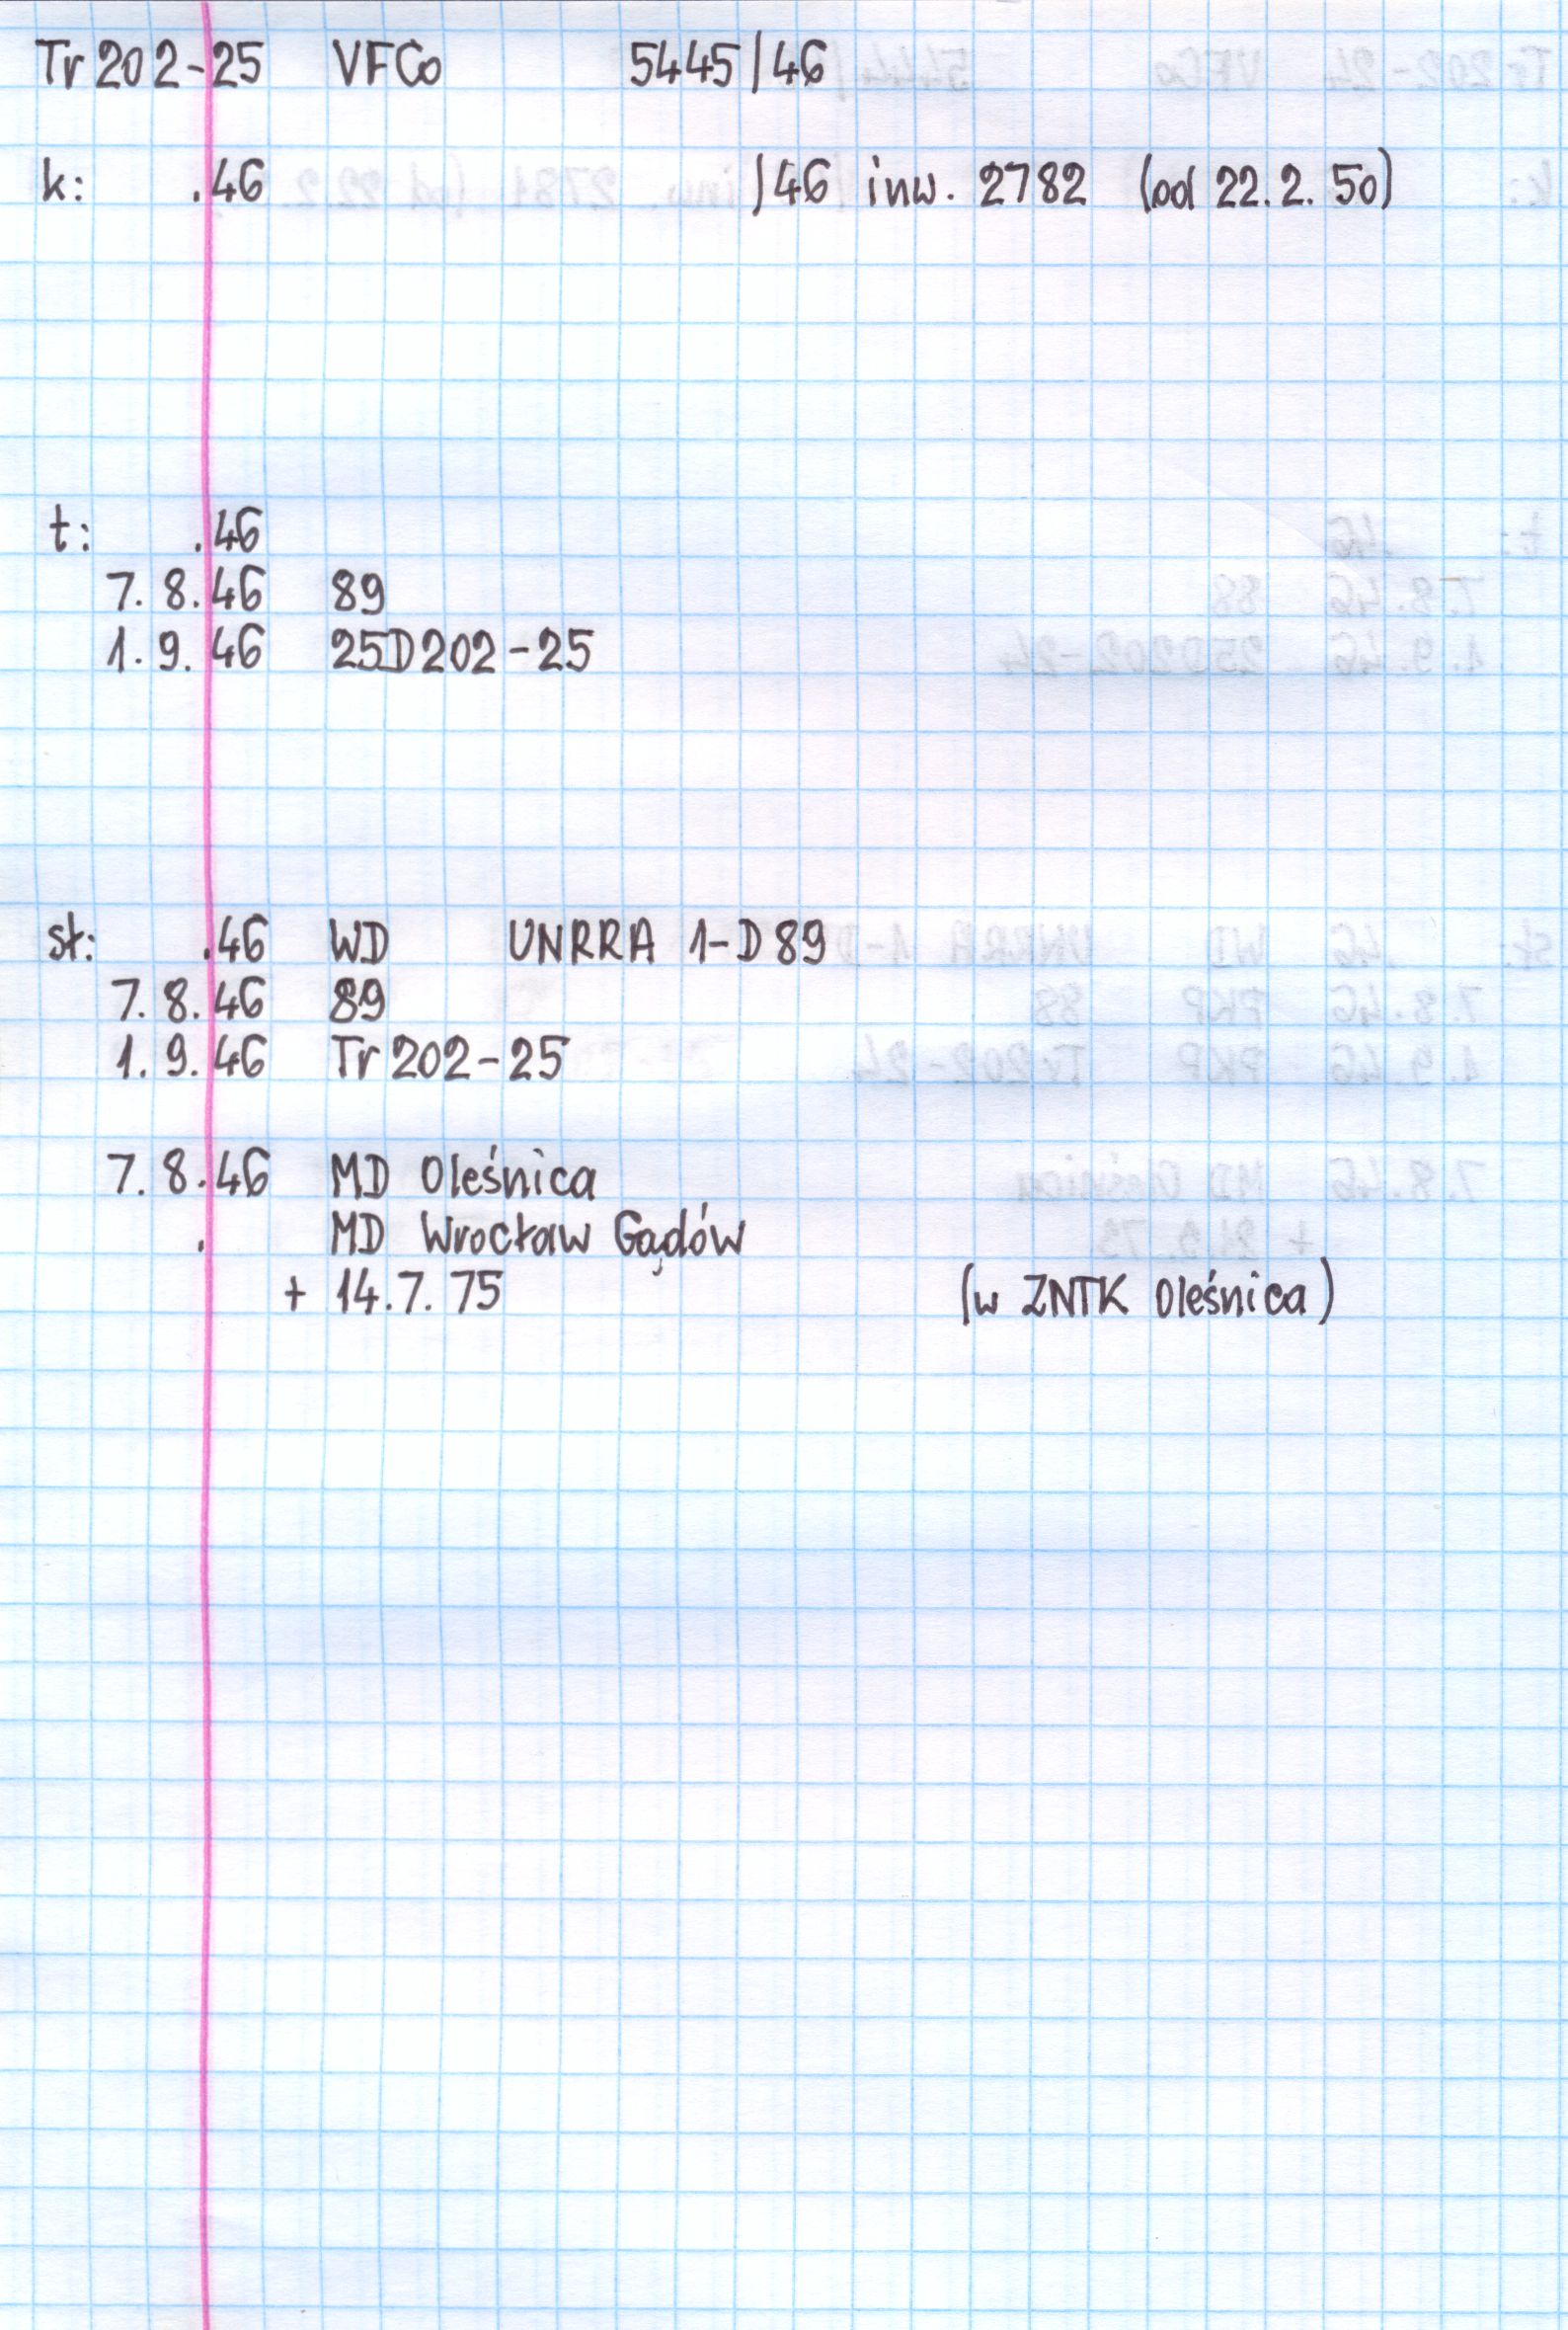 Tr 202-25 VFCo 5445/46
k: .46 /46 inw. 2782 (od 22.2.50)
t: .46
7.8.46 89
1.9.46 25D202-25
st: .46 WD UNRRA 1-D89
7.8.46 89
1.9.46 Tr 202-25
7.8.46 MD Oleśnica
. MD Wrocław Gądów
+ 14.7.75 (w ZNTK Oleśnica)